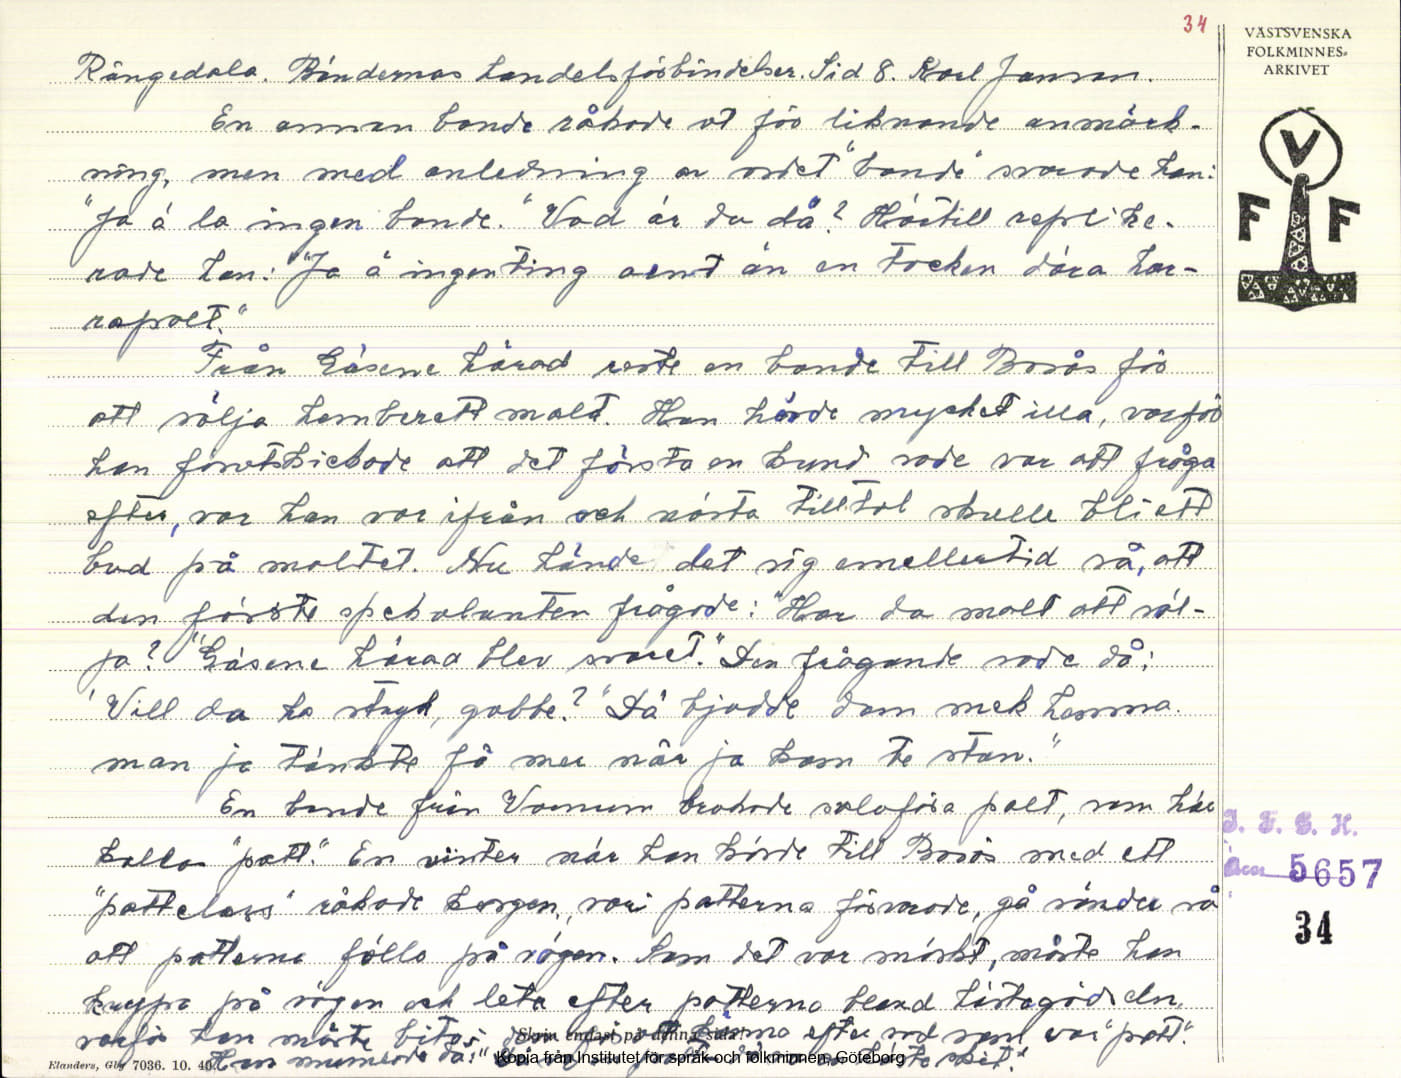 34
VÄSTSVENSKA
FOLKMINNES-
ARKIVET
V
F F
Rångedala. Böndernas handelsförbindelser. Sid 8. Karl Janson.
En annan bonde råkade ut för liknande anmärk-
ning, men med anledning av ordet "bonde" svarade han:
"Ja ä la ingen bonde." Vad är du då? Härtill replike-
rade han: "Ja ä ingenting aent än en tocken dära har-
rapalt."
Från Gäsene härad reste en bonde till Borås för
att sälja hemberett malt. Han hörde mycket illa, varför
han förutskickade att det första en kund sade var att fråga
efter, var han var ifrån och nästa tilltal skulle bli ett
bud på maltet. Nu hände det sig emellertid så, att
den förste spekulanten frågade: "Har da malt att säl-
ja? "Gäsene härad blev svaret." Den frågande sade då:
"Vill da ha stryk, gubbe?" "Då bjudde dom mek hemma
man ja tänkte få mer när ja kom te stan."
En bonde från Varnum brukade saluföra palt, som här
kallas "patt." En vinter när han körde till Borås med ett
"pattelass" råkade korgen, vari patterna förvarade, gå sönder så
att patterna föllo på vägen. Som det var mörkt, måste han
krypa på vägen och leta efter patterna bland hästagödseln,
varför han måste bita i dem för att känna efter vad som var "patt".
Han mumlade då: "
Skriv endast på denna sida!
Kopia från Institutet för språk och folkminnen, Göteborg
Elanders, Gbg 7036. 10. 40.
I. F. G. H.
Acc 5657
34